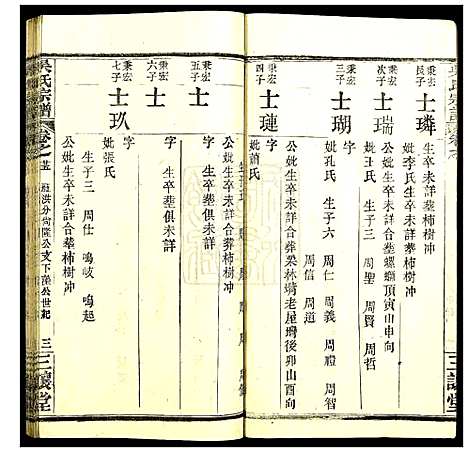 吳氏宗譜
秉宏
長子
士璘
生卒未詳葬柿樹冲
妣李氏生卒未詳合葬柿樹冲
秉宏
次子
士瑞
公妣生卒未詳合葬螺螄頂寅山申向
妣丑氏 生子三 周聖 周賢 周哲
秉宏
三子
士瑚
妣孔氏 生子六 周仁 周義 周禮 周智
周信 周道
秉宏
四子
士璉
公妣生卒未詳合葬梁林塆老屋塆後卯山酉向
妣蕭氏
三讓堂
秉宏
五子
士
字
生卒葬俱未詳
秉宏
六子
士
字
生卒葬俱未詳
秉宏
七子
士玖
公妣生卒未詳合葬柿樹冲
妣張氏
生子三 周仕 鳴岐 鳴起
吳氏宗譜
卷之
三
三讓堂